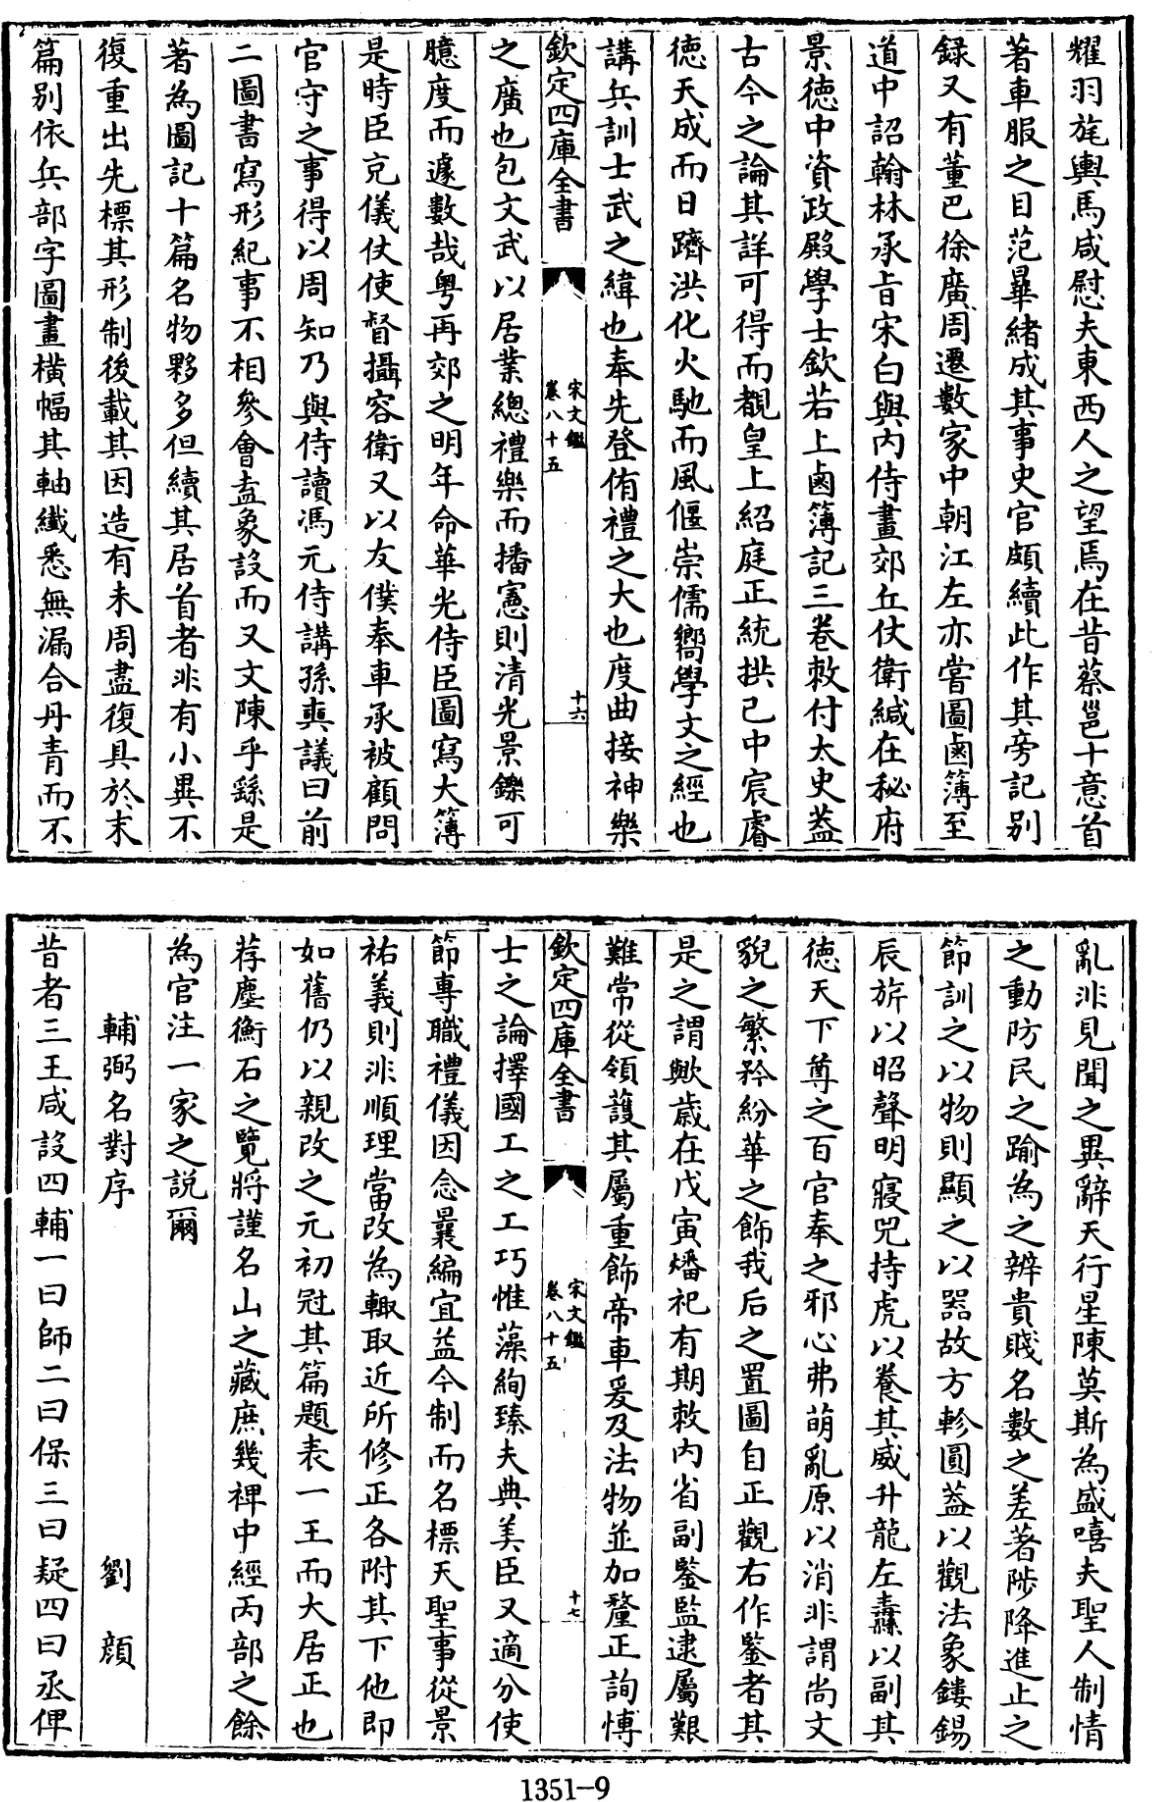 耀羽旄輿馬咸慰夫東西人之望焉在昔蔡邕十意首
著車服之目范曅緒成其事史官頗續此作其旁記別
録又有董巴徐廣周遷數家中朝江左亦嘗圖鹵簿至
道中詔翰林承旨宋白與内侍畫郊丘仗衛緘在秘府
景徳中資政殿學士欽若上鹵簿記三卷敕付太史蓋
古今之論其詳可得而覩皇上紹庭正統拱己中宸睿
徳天成而日躋洪化火馳而風偃崇儒嚮學文之經也
講兵訓士武之緯也奉先登侑禮之大也度曲接神樂
欽定四庫全書
宋文鑑
卷八十五
十六
之廣也包文武以居業總禮樂而播憲則清光景鑠可
臆度而遽數哉粤再郊之明年命華光侍臣圖寫大簿
是時臣克儀仗使督攝容衛又以友僕奉車承被顧問
官守之事得以周知乃與侍讀馮元侍講孫奭議曰前
二圖書寫形紀事不相參會盍象設而又文陳乎繇是
著為圖記十篇名物夥多但續其居首者非有小異不
復重出先標其形制後載其因造有未周盡復具於末
篇别依兵部字圖畫横幅其軸纎悉無漏合丹青而不
亂非見聞之異辭天行星陳莫斯為盛嘻夫聖人制情
之動防民之踰為之辨貴賤名數之差著陟降進止之
節訓之以物則顯之以器故方軫圓蓋以觀法象鏤錫
辰旂以昭聲明寝兕持虎以養其威升龍左纛以副其
徳天下尊之百官奉之邪心弗萌亂原以消非謂尚文
貌之繁矜紛華之飾我后之置圖自正觀右作鑒者其
是之謂歟歳在戊寅燔祀有期敕内省副鑒監逮屬艱
難常從領護其屬重飾帝車爰及法物並加釐正詢博
欽定四庫全書
宋文鑑
卷八十五
十七
士之論擇國工之工巧惟藻絢臻夫典美臣又適分使
節專職禮儀因念曩編宜益今制而名標天聖事從景
祐義則非順理當改為輙取近所修正各附其下他即
如舊仍以親改之元初冠其篇題表一王而大居正也
荐塵衡石之覽將謹名山之藏庶幾禆中經丙部之餘
為官注一家之説爾
輔弼名對序 劉顔
昔者三王咸設四輔一曰師二曰保三曰疑四曰丞俾
1351-9